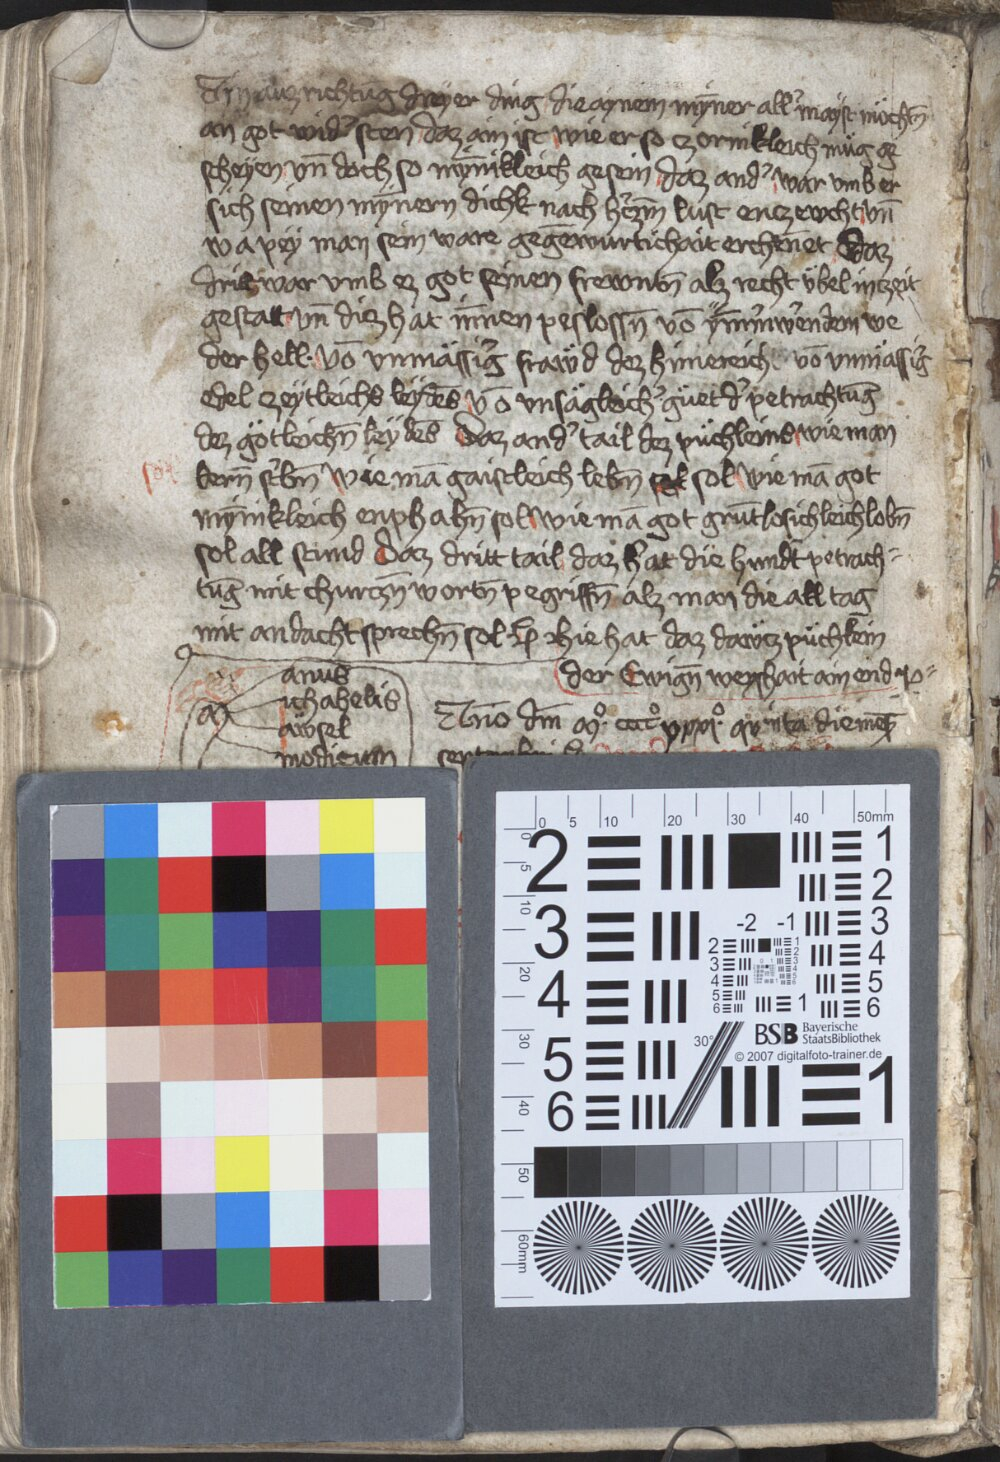 Ein auzrichtu̅g dreyer ding die aynem myner all' mayst möcht̅n
an got wid' sten daz ain ist wie er so czornikleich müg ge
scheyen vn̅ doch so mynnikleich gesein daz and' war vmb er
sich seinen mynern dickk nach h'cz̅n lust enczewcht vn̅
wa pey man sein ware gege̅wurtichait erchen̅et Daz
drit war vmb ez got seinen frewnt̅n alz recht vbel in czeit
gestatt vn̅ diez hat innen peslossn̅ vo̅ we
der hell. Vo̅ vnmässig' frawd dez himelreich. vo̅ vnmässig'
edel czeytleichs leydes vo̅ vnsägleich' güet d' petrachtu̅g
dez götleich̅n leydes Daz and' tail dez püchleins wie man
lern̅ st'b̅n wie ma̅ gaistleich leb̅n sol wie ma̅ got
mynnikleich enphah̅n sol wie ma̅ got gruntlosichleich lob̅n
sol all stund Daz dritt tail daz hat die hundt petrach=
tu̅g mit churcz̅n wort̅n pegriff̅n alz man die all tag
mit andacht sprech̅n sol hie hat daz dawcz püchlein
der Ewign̅ weyshait ain end
anus
ichahelis
a) äwsel
modicum
An̅o dm̅ mº. ccccº xxxjº. qvinta die me̅s
septembri
0 5 10 20 30 40 50mm
0 5 10 20 30 40 50 60mm
2 3 4 5 6
1 2 3 4 5 6
-2 -1
2 3 4 5 6
1
1
30°
BSB Bayerische
StaatsBibliothek
© 2007 digitalfoto-trainer.de